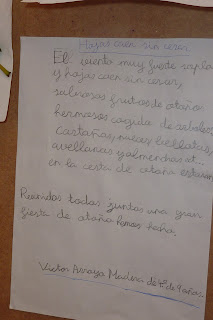 Hojas caen sin cesar
El viento muy fuerte sopla
y hojas caen sin cesar,
sabrosos frutos de otoño
hermosos cogida de arboles
castañas, nueces, bellotas,
avellanas y almendras et...
en la cesta de otoño estaran
Reunidos todos juntos una gran
fiesta de otoño hemos hecho.
Victor Arroyo Madera de 4º de 9 años.